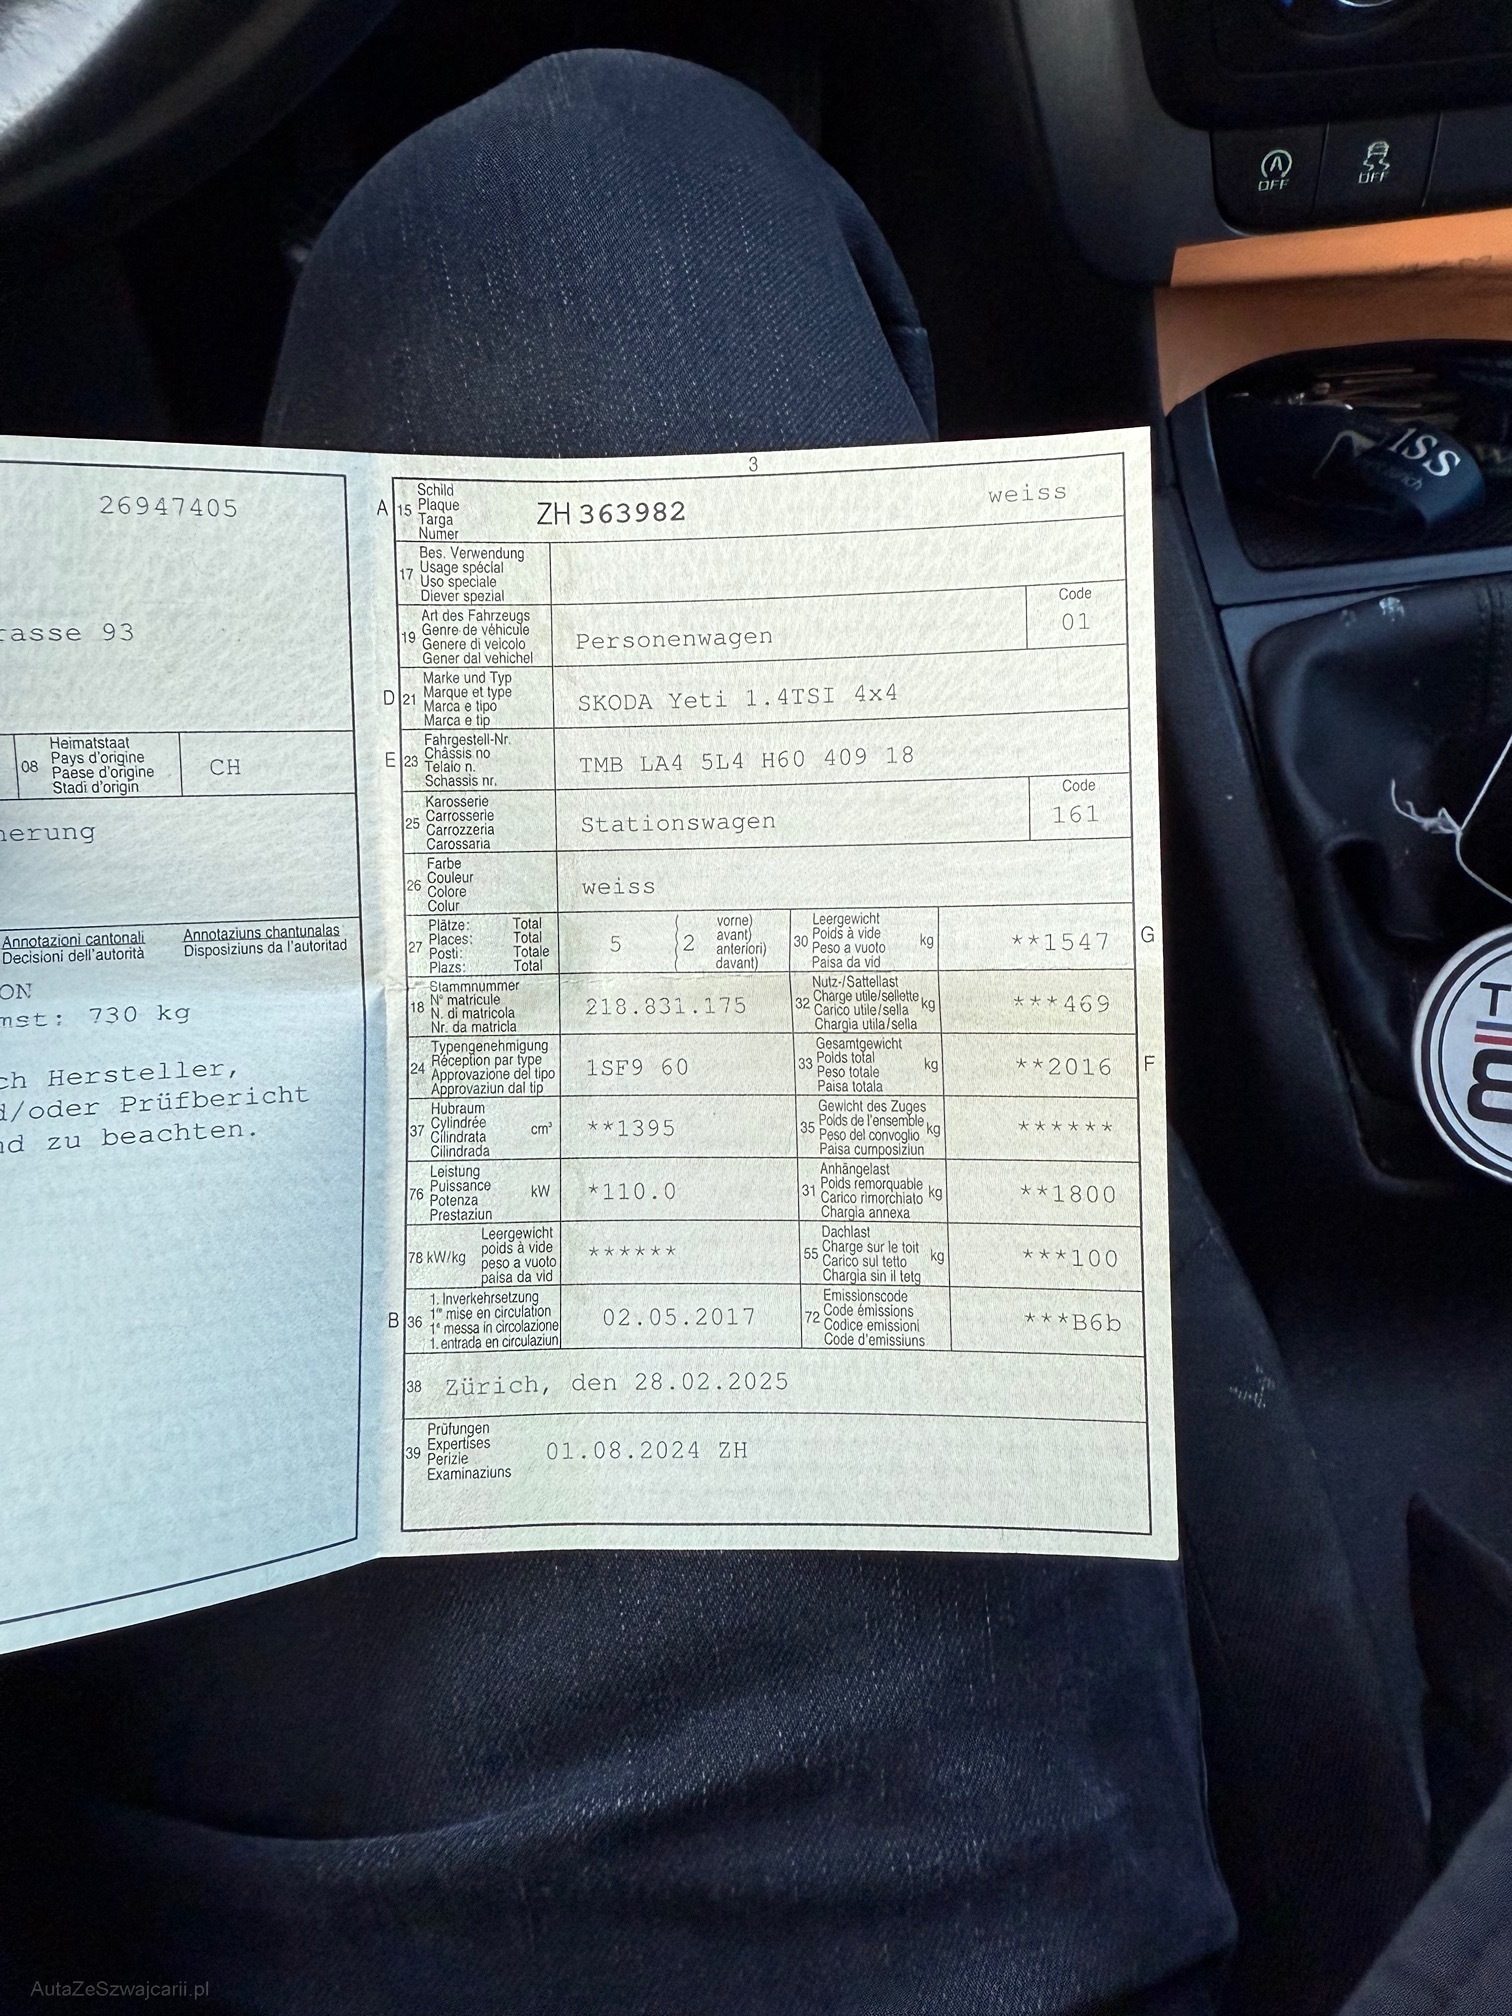 OFF
OFF
26947405
rasse 93
08
Heimatstaat
Pays d'origine
Paese d'origine
Stadi d'origin
CH
herung
Annotazioni cantonali
Decisioni dell'autorità
Annotaziuns chantunalas
Disposiziuns da l'autoritad
ON
nst: 730 kg
ch Hersteller,
d/oder Prüfbericht
nd zu beachten.
3
A
15
Schild
Plaque
Targa
Numer
ZH 363982
weiss
17
Bes. Verwendung
Usage spécial
Uso speciale
Diever spezial
19
Art des Fahrzeugs
Genre de véhicule
Genere di veicolo
Gener dal vehichel
Personenwagen
Code
01
D
21
Marke und Typ
Marque et type
Marca e tipo
Marca e tip
SKODA Yeti 1.4TSI 4x4
E
23
Fahrgestell-Nr.
Châssis no
Telaio n.
Schassis nr.
TMB LA4 5L4 H60 409 18
25
Karosserie
Carrosserie
Carrozzeria
Carossaria
Stationswagen
Code
161
26
Farbe
Couleur
Colore
Colur
weiss
27
Plätze: Total
Places: Total
Posti: Totale
Plazs: Total
5
(2
vorne)
avant)
anteriori)
davant)
30
Leergewicht
Poids à vide
Peso a vuoto
Paisa da vid
kg
**1547
G
18
Stammnummer
N° matricule
N. di matricola
Nr. da matricla
218.831.175
32
Nutz-/Sattellast
Charge utile/sellette
Carico utile/sella
Chargia utila/sella
kg
***469
24
Typengenehmigung
Réception par type
Approvazione del tipo
Approvaziun dal tip
1SF9 60
33
Gesamtgewicht
Poids total
Peso totale
Paisa totala
kg
**2016
F
37
Hubraum
Cylindrée
Cilindrata
Cilindrada
cm³
**1395
35
Gewicht des Zuges
Poids de l'ensemble
Peso del convoglio
Paisa cumposiziun
kg
******
76
Leistung
Puissance
Potenza
Prestaziun
kW
*110.0
31
Anhängelast
Poids remorquable
Carico rimorchiato
Chargia annexa
kg
**1800
78 kW/kg
Leergewicht
poids à vide
peso a vuoto
paisa da vid
******
55
Dachlast
Charge sur le toit
Carico sul tetto
Chargia sin il tetg
kg
***100
B
36
1. Inverkehrsetzung
1re mise en circulation
1a messa in circolazione
1. entrada en circulaziun
02.05.2017
72
Emissionscode
Code émissions
Codice emissioni
Code d'emissiuns
***B6b
38
Zürich, den 28.02.2025
39
Prüfungen
Expertises
Perizie
Examinaziuns
01.08.2024 ZH
AutaZeSzwajcarii.pl